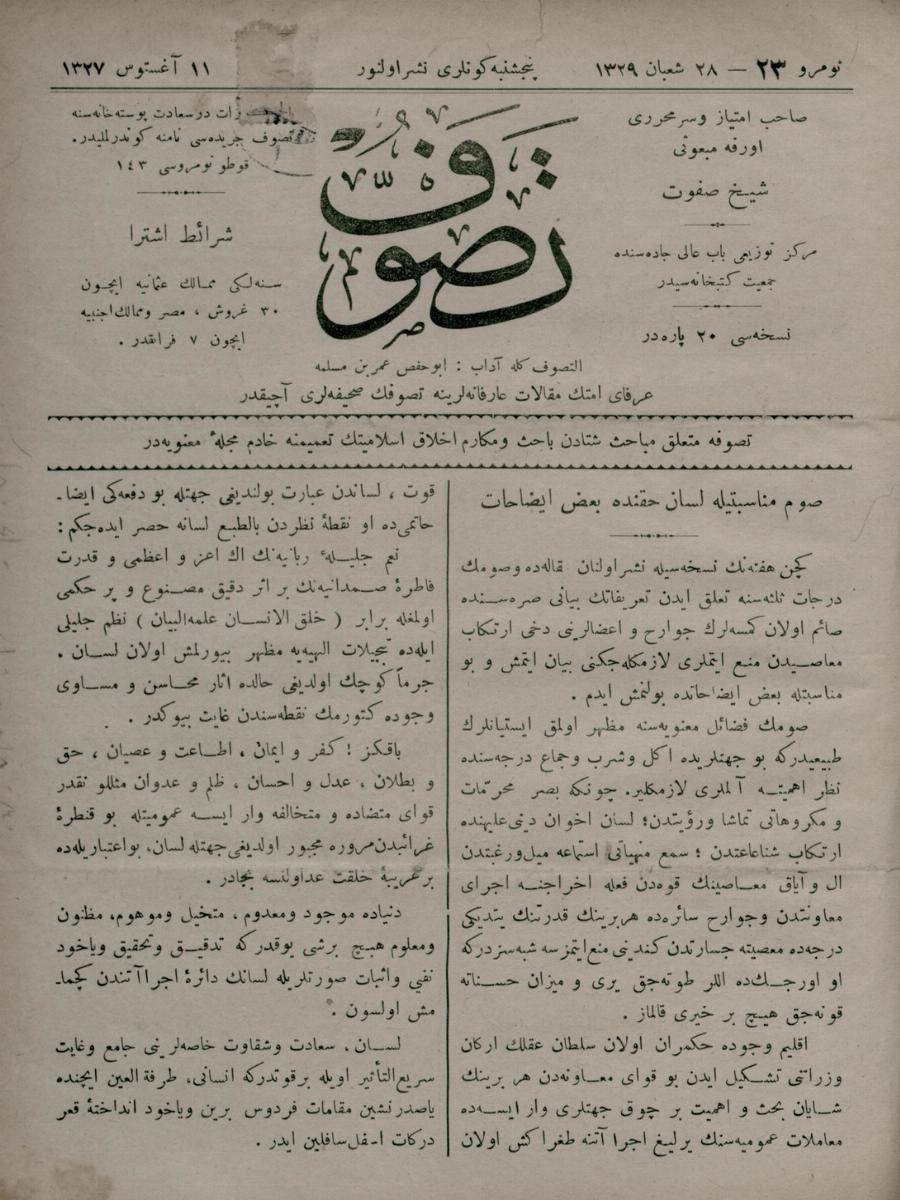 نومرو ٢٣ — ٢٨ شعبان ١٣٢٩
پنجشنبه كونلری نشر اولنور
١١ آغستوس ١٣٢٧
صاحب امتیاز و سرمحرری
اورفه مبعوثی
شیخ صفوت
مركز توزیعی باب عالی جاده‌سنده
جمعیت كتبخانه‌سیدر
نسخه‌سی ٢٠ پاره‌در
تصوف
در سعادت پوسته‌خانه‌سنه
تصوف جریده‌سی نامنه كوندرلملیدر.
قوطو نومروسی ١٤٣
شرائط اشترا
سنه‌لكی ممالك عثمانیه ایچون
٣٠ غروش ، مصر وممالك اجنبیه
ایچون ٧ فرانقدر .
التصوف كله آداب : ابوحفص عمر بن مسلمه
عرفای امتك مقالات عارفانه‌لرینه تصوفك صحیفه‌لری آچیقدر
تصوفه متعلق مباحث شتادن باحث ومكارم اخلاق اسلامیتك تعمیمنه خادم مجلهٔ معنویه‌در
صوم مناسبتیله لسان حقنده بعض ایضاحات
كچن هفته‌نك نسخه‌سیله نشر اولنان مقاله‌ده وصومك
درجات ثلثه‌سنه تعلق ایدن تعریفاتك بیانی صره‌سنده
صائم اولان كمسه‌لرك جوارح و اعضالرینی دخی ارتكاب
معاصیدن منع ایتملری لازمكله‌جكنی بیان ایتمش و بو
مناسبتله بعض ایضاحاتده بولنمش ایدم .
صومك فضائل معنویه‌سنه مظهر اولمق ایستیانلرك
طبیعیدركه بو جهتلریده اكل وشرب وجماع درجه‌سنده
نظر اهمیته آلملری لازمكلیر. چونكه بصر محرّمات
و مكروهاتی تماشا ورؤیتدن؛ لسان اخوان دینی علیهنده
ارتكاب شناعاتدن ؛ سمع منهیاتی استماعه میل ورغبتدن
ال وآیاق معاصینك قوه‌دن فعله اخراجنه اجرای
معاونتدن وجوارح سائره‌ده هر برینك قدرتنك یتدیكی
درجه‌ده معصیته جسارتدن كندینی منع ایتمز سه شبه‌سزدركه
او اورجك‌ده اللر طوته‌جق یری و میزان حسناته
قونه‌جق هیچ بر خیری قالماز .
اقلیم وجوده حكمران اولان سلطان عقلك اركان
وزراتنی تشكیل ایدن بو قوای معاونه‌دن هر برینك
شایان بحث و اهمیت بر چوق جهتلری وار ایسه‌ده
معاملات عمومیه‌سنك یرلیغ اجرا آتنه طغراكش اولان
قوت ، لساندن عبارت بولندیغی جهتله بو دفعه‌كی ایضا-
حاتمی‌ده او نقطهٔ نظردن بالطبع لسانه حصر ایده‌جكم:
نعم جلیلهٔ ربانیه‌نك اك اعز و اعظمی و قدرت
فاطرهٔ صمدانیه‌نك بر اثر دقیق مصنوع و پر حكمی
اولمغله برابر ( خلق الانسان علمه البیان ) نظم جلیلی
ایله‌ده تبجیلات الهیه‌یه مظهر بیورلمش اولان لسان .
جرماً كوچك اولدیغی حالده اثار محاسن و مساوی
وجوده كتورمك نقطه‌سندن غایت بیوكدر .
باقكز ! كفر و ایمان ، اطاعت و عصیان ، حق
و بطلان ، عدل و احسان ، ظلم و عدوان مثللو نقدر
قوای متضاده و متخالفه وار ایسه عمومیتله بو قنطرهٔ
غرائبدن مروره مجبور اولدیغی جهتله لسان، بو اعتبارله‌ده
بر غریبهٔ خلقت عد اولنسه بجادر .
دنیاده موجود ومعدوم ، متخیل وموهوم، مظنون
ومعلوم هیچ برشی یوقدركه تدقیق وتحقیق ویاخود
نفی واثبات صورتلریله لسانك دائرهٔ اجرا آتندن كچما-
مش اولسون .
لسان ، سعادت وشقاوت خاصه‌لرینی جامع وغایت
سریع التأثیر اویله برقوتدركه انسانی، طرفة العین ایچنده
یا صدر نشین مقامات فردوس برین ویاخود انداختهٔ قعر
دركات اسفل سافلین ایدر .